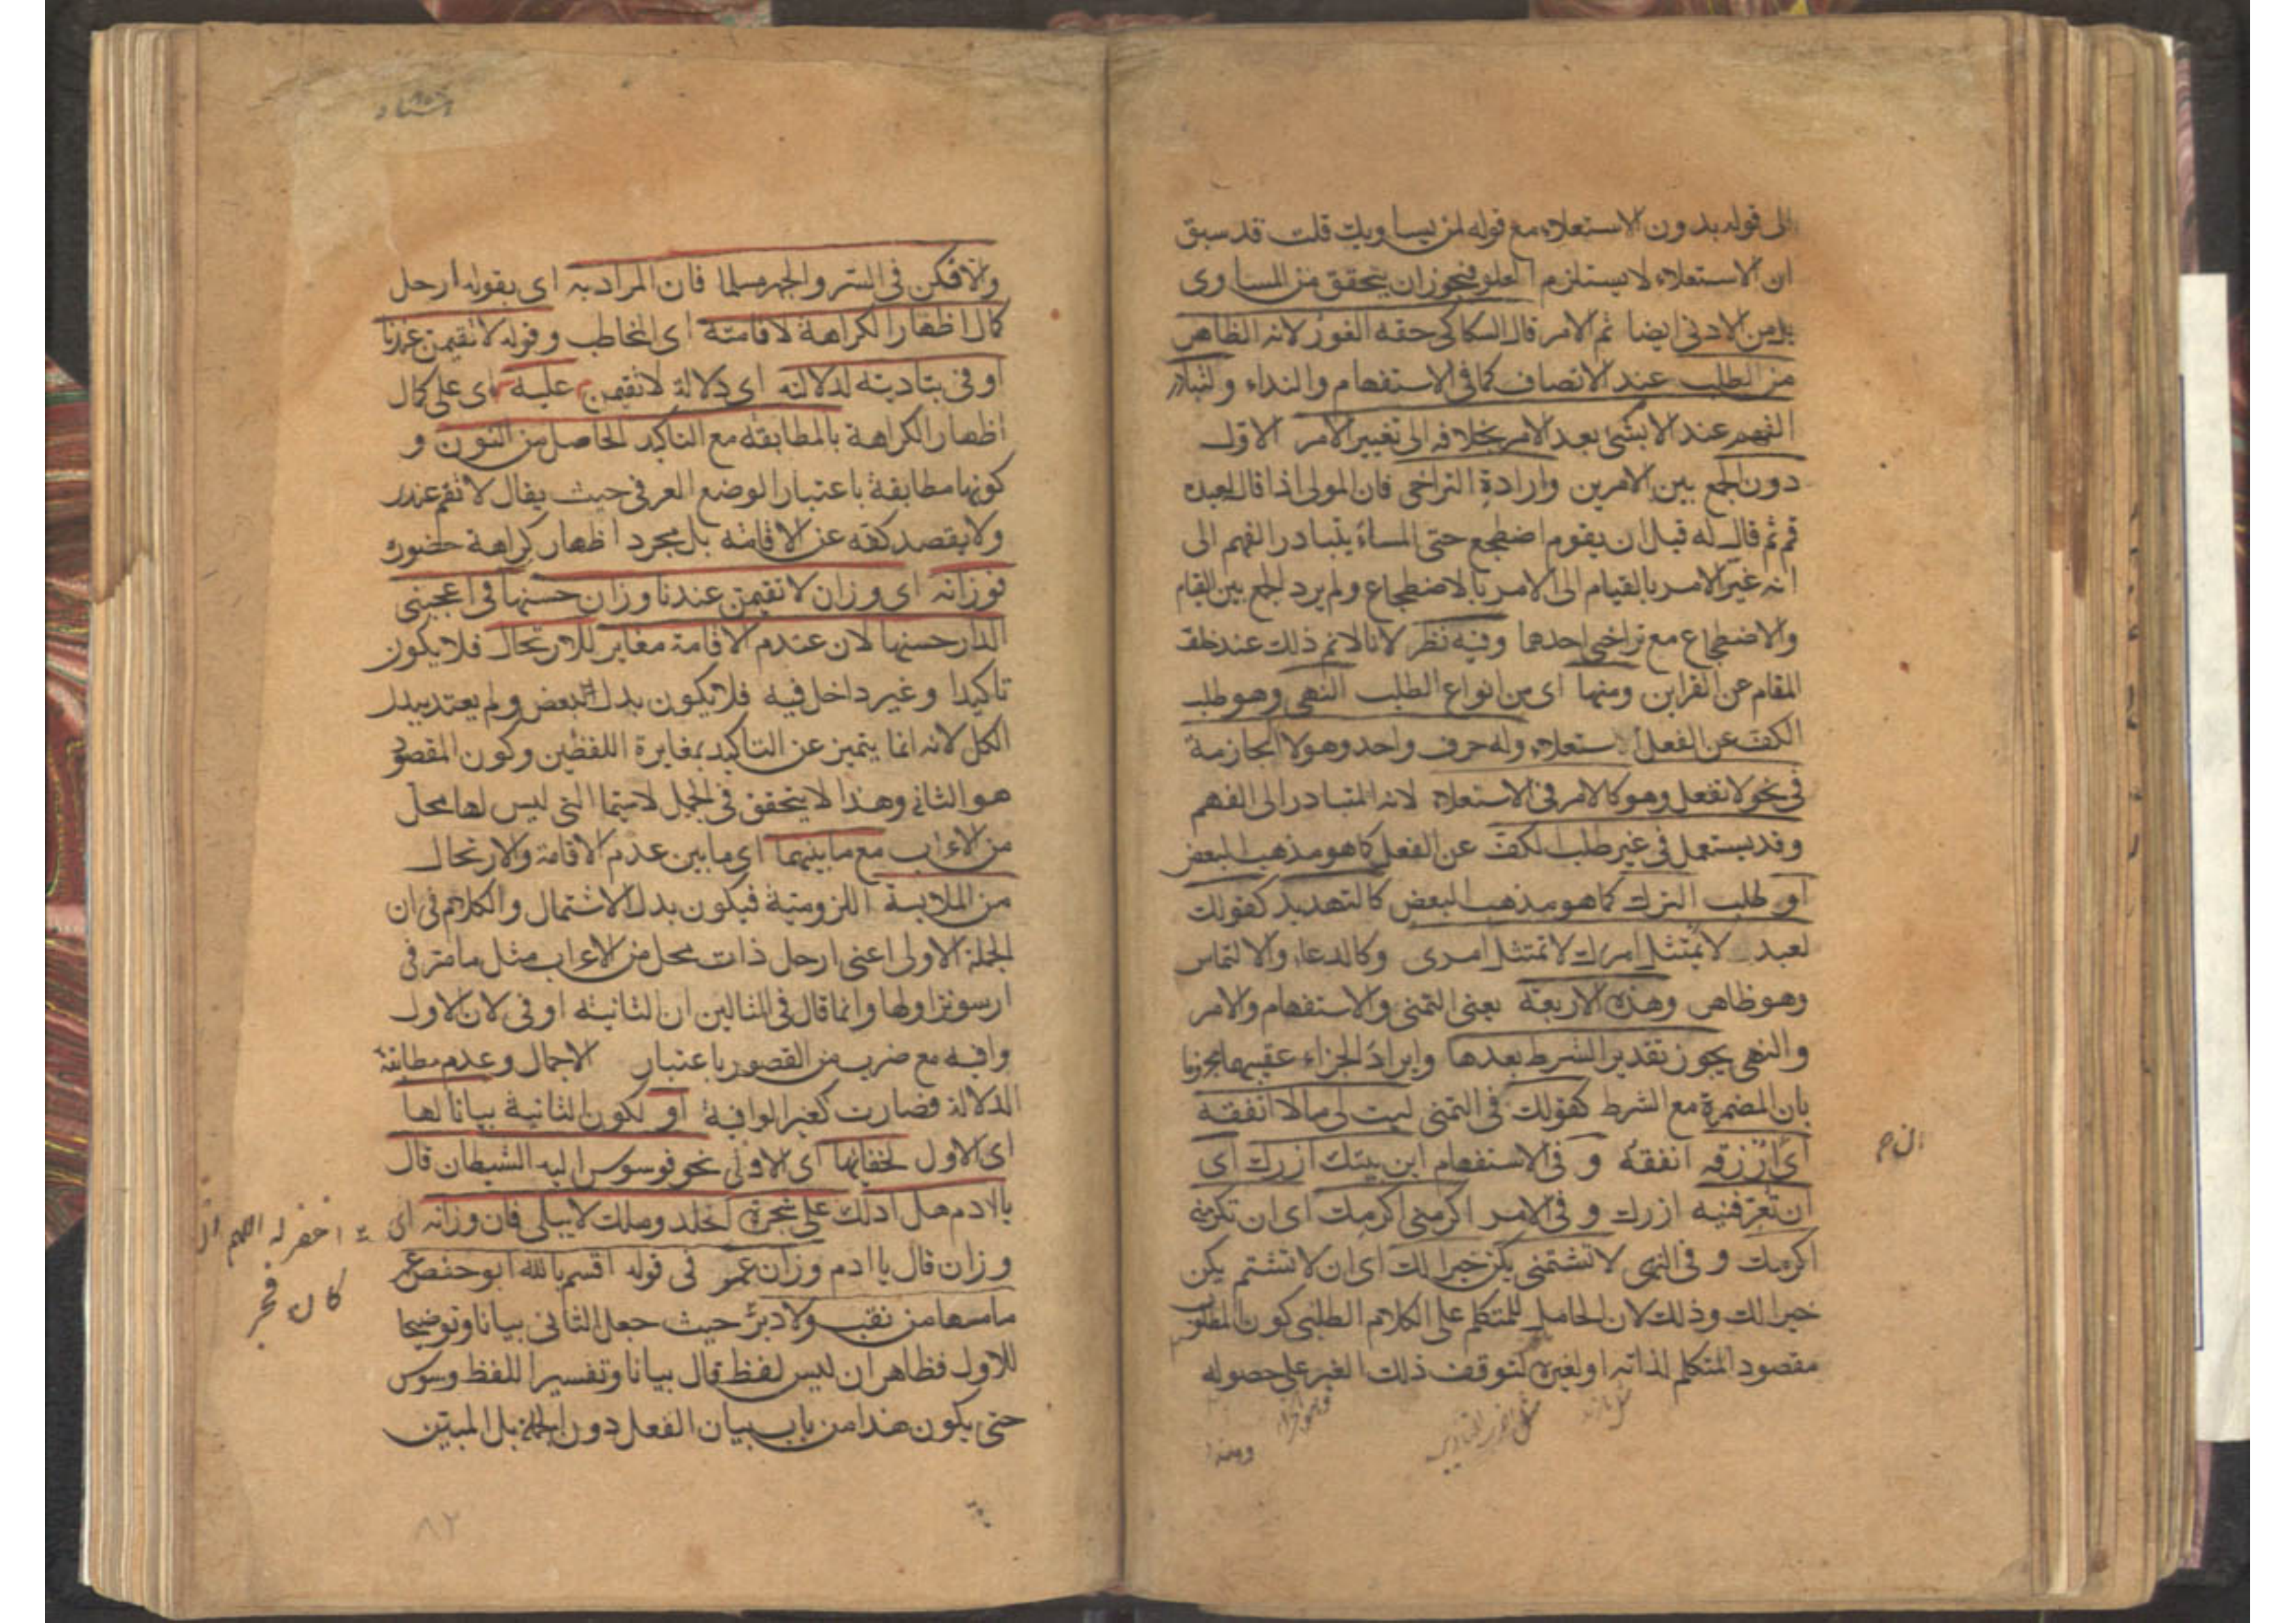 الى قوله بدون الاستعلاء مع قوله لمن يساويك قلت قد سبق
ان الاستعلاء لا يستلزم العلو فيجوز ان يتحقق من المساوى
بل من الادنى ايضا ثم الامر قال السكاكى حقه الفور لانه الظاهر
من الطلب عند الانصاف كما فى الاستفهام والنداء ولتبادر
الفهم عند الامر بشئ بعد الامر بخلافه الى تغيير الامر الاول
دون الجمع بين الامرين وارادة التراخى فان المولى اذا قال لعبده
قم ثم قال له قبل ان يقوم اضطجع حتى المساء يتبادر الفهم الى
انه غير الامر بالقيام الى الامر بالاضطجاع ولم يرد الجمع بين القيام
والاضطجاع مع تراخى احدهما وفيه نظر لانا لا نم ذلك عند خلو
المقام عن القراين ومنها اى من انواع الطلب النهى وهو طلب
الكف عن الفعل استعلاء وله حرف واحد وهو لا الجازمة
فى نحو لا تفعل وهو كالامر فى الاستعلاء لانه المتبادر الى الفهم
وقد يستعمل فى غير طلب الكف عن الفعل كما هو مذهب البعض
او طلب الترك كما هو مذهب البعض كالتهديد كقولك
لعبد لا يمتثل امرك لا تمتثل امرى وكالدعاء والالتماس
وهو ظاهر وهذه الاربعة يعنى التمنى والاستفهام والامر
والنهى يجوز تقدير الشرط بعدها وايراد الجزاء عقيبها مجزوما
بان المضمرة مع الشرط كقولك فى التمنى ليت لى مالا انفقه
اى ارزقه انفقه و فى الاستفهام اين بيتك ازرك اى
ان تعرفنيه ازرك و فى الامر اكرمنى اكرمك اى ان تكرمنى
اكرمك و فى النهى لا تشتمنى يكن خيرا لك اى ان لا تشتم يكن
خيرا لك وذلك لان الحامل للمتكلم على الكلام الطلبى كون المطلوب
مقصود المتكلم لذاته او لغيره لتوقف ذلك الغير على حصوله
والا فكن فى السر والجهر مسلما فان المراد به اى بقوله ارحل
كمال اظهار الكراهة لاقامته اى المخاطب وقوله لا تقيمن عندنا
اوفى بتاديته لدلالته اى دلالة لا تقيمن عليه اى على كمال
اظهار الكراهة بالمطابقة مع التاكيد الحاصل من النون و
كونها مطابقة باعتبار الوضع العرفى حيث يقال لا تقم عندى
ولا يقصد كفه عن الاقامة بل مجرد اظهار كراهة حضوره
فوزانه اى وزان لا تقيمن عندنا وزان حسنها فى اعجبنى
الدار حسنها لان عدم الاقامة مغاير للارتحال فلا يكون
تاكيدا وغير داخل فيه فلا يكون بدل البعض ولم يعتد ببدل
الكل لانه انما يتميز عن التاكيد بمغايرة اللفظين وكون المقصود
هو الثانى وهذا لا يتحقق فى الجمل لا سيما التى ليس لها محل
من الاعراب مع ما بينهما اى ما بين عدم الاقامة والارتحال
من الملابسة اللزومية فيكون بدل الاشتمال والكلام فى ان
الجملة الاولى اعنى ارحل ذات محل من الاعراب مثل ما مر فى
ارسو نزاولها وانما قال فى المثالين ان الثانية اوفى لان الاول
وافية مع ضرب من القصور باعتبار الاجمال وعدم مطابقة
الدلالة فصارت كغير الوافية او لكون الثانية بيانا لها
اى الاول لخفائها اى الاولى نحو فوسوس اليه الشيطان قال
يا ادم هل ادلك على شجرة الخلد وملك لا يبلى فان وزانه اى
وزان قال يا ادم وزان عمر فى قوله اقسم بالله ابو حفص عمر
ما مسها من نقب ولا دبر حيث جعل الثانى بيانا وتوضيحا
للاول فظاهر ان ليس لفظ قال بيانا وتفسيرا للفظ وسوس
حتى يكون هذا من باب بيان الفعل دون الجملة بل المبين
اغفر له اللهم ان
كان فجر
٨٢